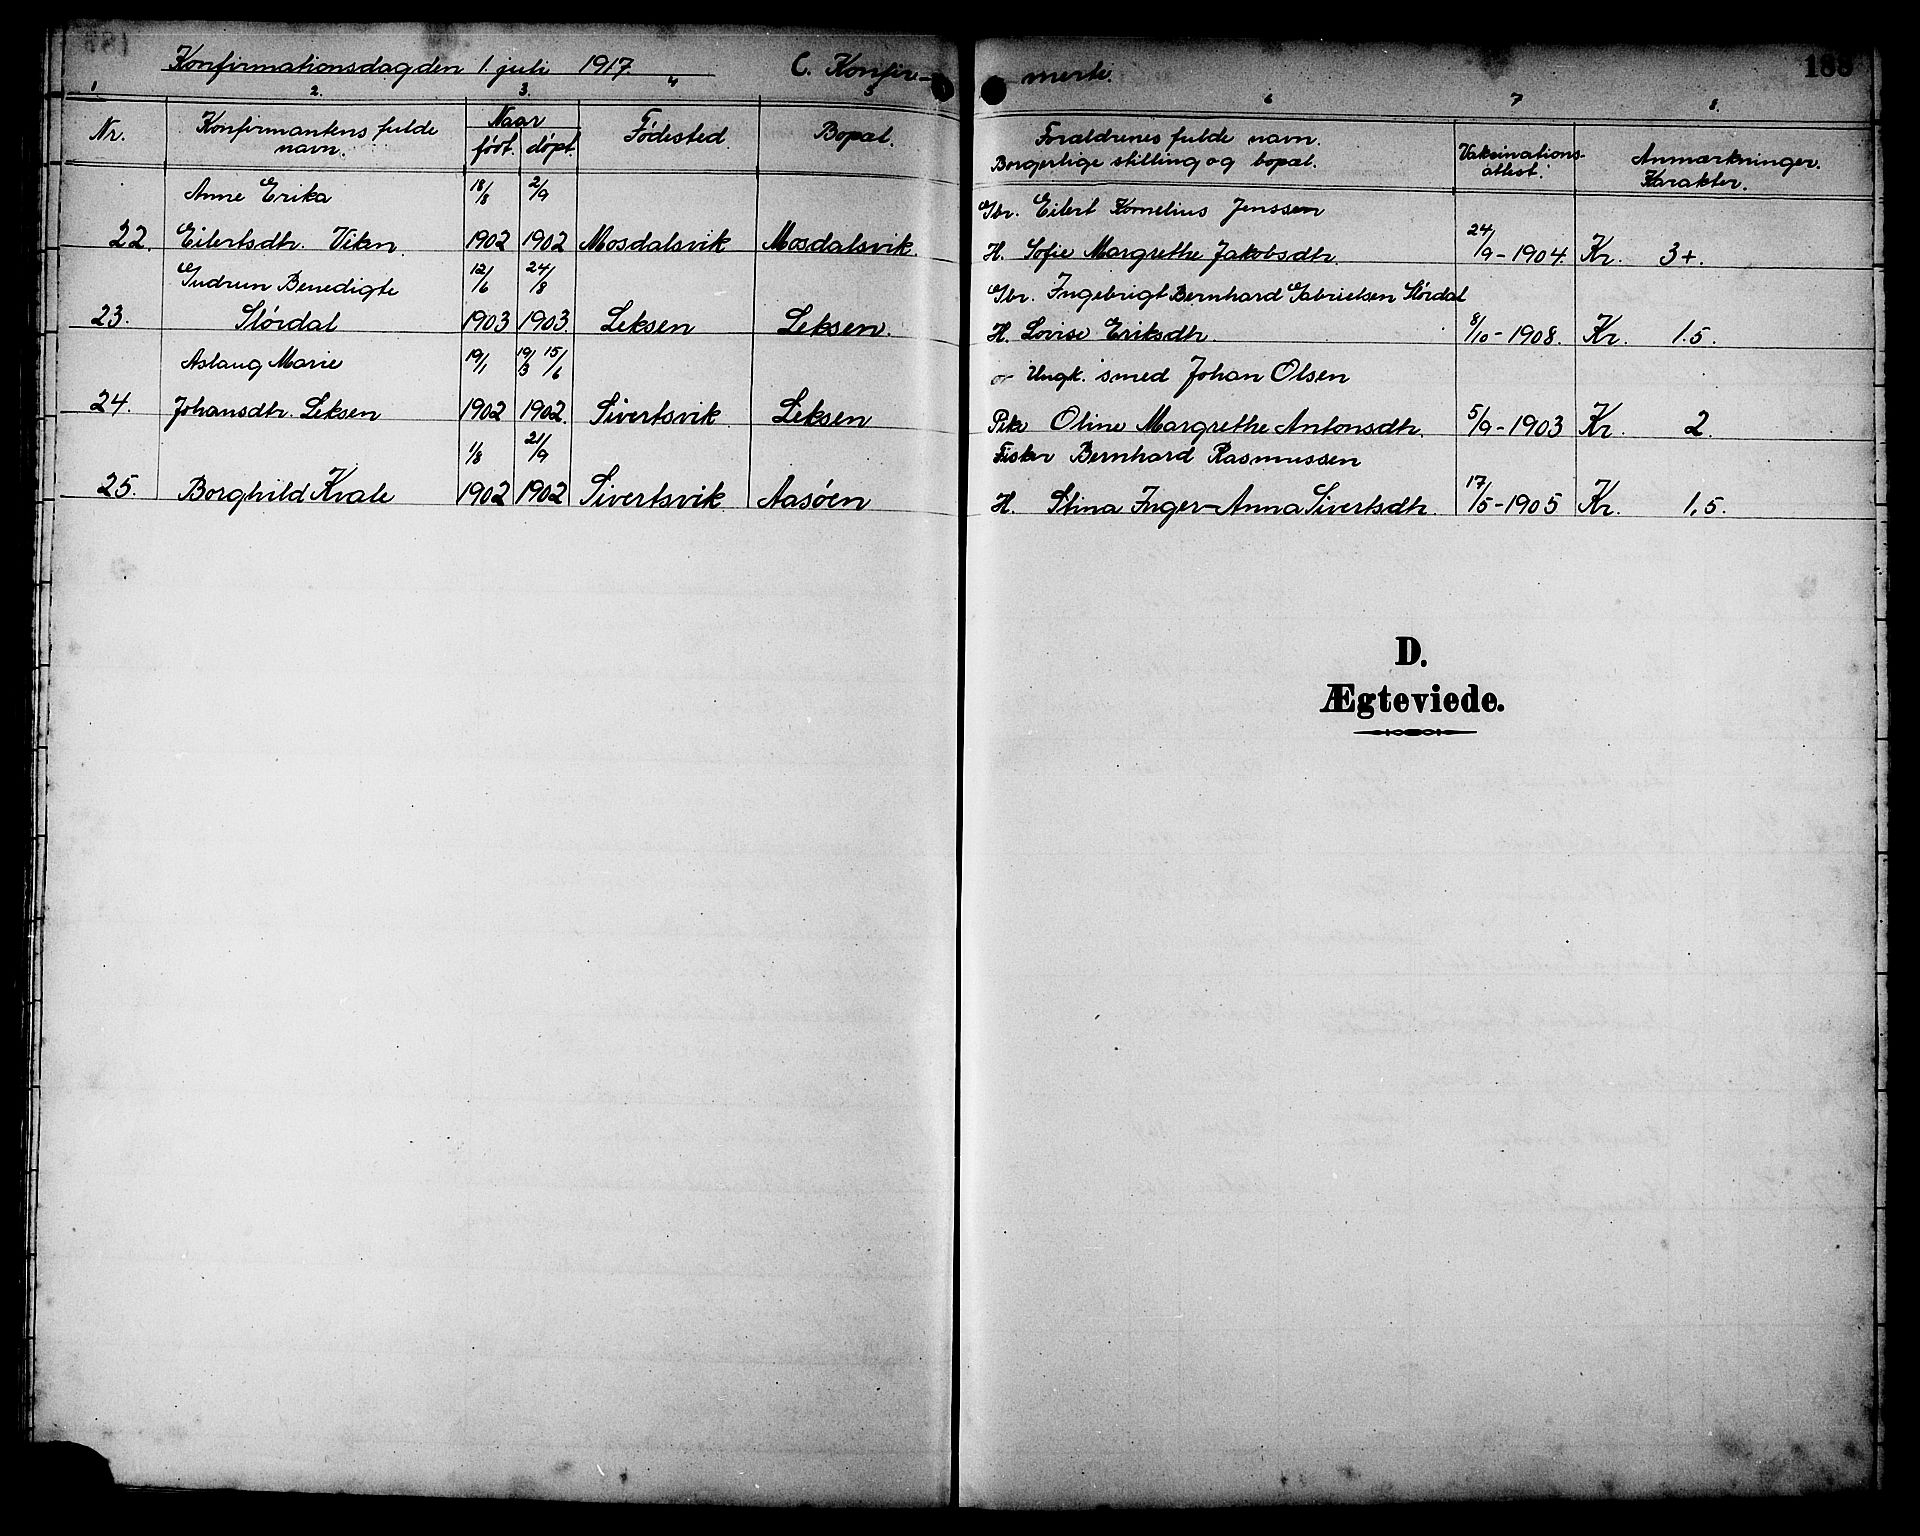 Konfirmationsdag den 1. juli 1917. " C. Konfir-
1 2. 3. 5
Nr. Konfirmantens fulde navn. Naar født. døpt. Fødested Bopæl.
Anne Erika 18/8 2/9
22. Eilertsdtr. Vikan. 1902 1902 Mosdalsvik Mosdalsvik.
Gudrun Benedigte 12/6 24/8
23. Størdal 1903 1903. Leksen Leksen.
Aslaug Marie 19/1 19/3 15/6
24. Johansdtr. Leksen 1902 1902. Sivertsvik Leksen
1/8 21/9
25. Borghild Kvale 1902 1902 Sivertsvik Aasøen
merte. 188
6 7 8.
Forældrenes fulde navn. Borgerlige stilling og bopæl. Vaksinations-attest. Anmærkninger. Karakter.
Gbr. Eilert Kornelius Jenssen
H. Sofie Margrethe Jakobsdtr. 24/9-1904. Kr. 3+.
Gbr. Ingebrigt Bernhard Gabrielsen Størdal
H. Lovise Eriksdtr. 8/10-1908. Kr. 1.5.
Ungk. smed Johan Olsen
Pike Oline Margrethe Antonsdtr. 5/9-1903 Kr. 2.
Fisker Bernhard Rasmussen
H. Stina Inger-Anna Sivertsdtr. 17/5-1905 Kr. 1,5.
D.
Ægteviede.